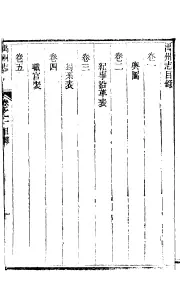 州志目錄
卷一
輿圖
卷二
紀事沿革表
卷三
表
卷四
職官表
卷五
州志
目錄